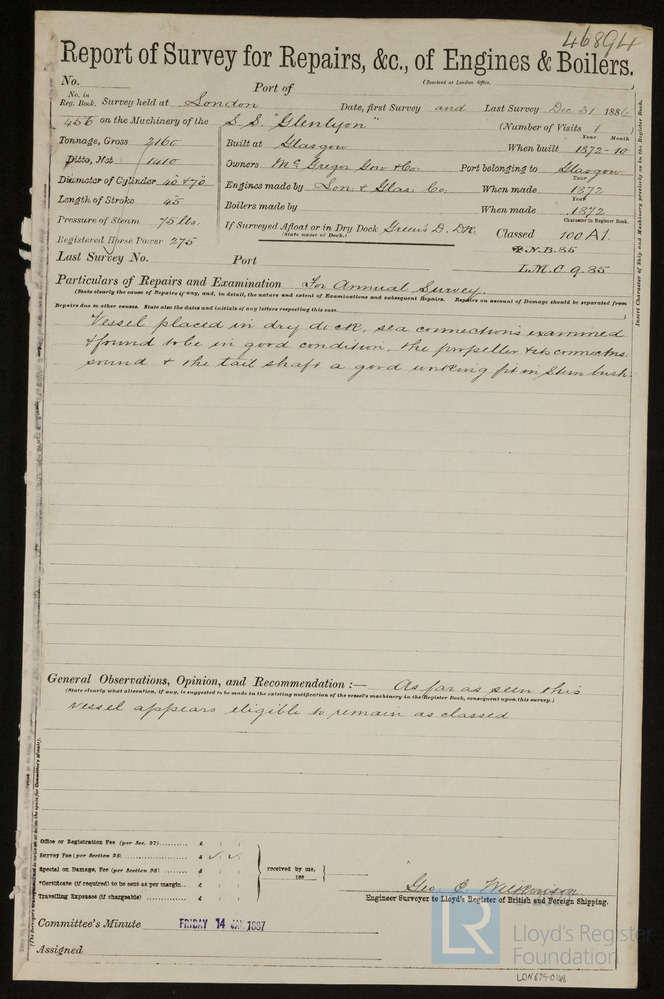 46894
Report of Survey for Repairs, &c., of Engines & Boilers.
(Received at London Office,
No. Port of
No. in Reg. Book. Survey held at London Date, first Survey and Last Survey Dec 31 1886
456 on the Machinery of the S.S. "Glenlyon" (Number of Visits 1
Tonnage, Gross 2160 Built at Glasgow When built Year Month 1872-10
Ditto, Net 1410 Owners McGregor Gow & Co Port belonging to Glasgow
Diameter of Cylinder 40 & 70 Engines made by Lon. & Glas. Co. When made Year 1872
Length of Stroke 45 Boilers made by When made Year 1872
Pressure of Steam 75 lbs. If Surveyed Afloat or in Dry Dock Green's D. Dk. Classed 100 A1.
(State name of Dock.) Character in Register Book.
Registered Horse Power 275 N.B. 85
Last Survey No. Port L.M.C. 9.85
Particulars of Repairs and Examination For Annual Survey.
(State clearly the cause of Repairs if any, and, in detail, the nature and extent of Examinations and subsequent Repairs. Repairs on account of Damage should be separated from
Repairs due to other causes. State also the dates and initials of any letters respecting this case.
Vessel placed in dry dock, sea connections examined
& found to be in good condition, the propeller & its connectns.
sound & the tail shaft a good working fit in Stern bush.
General Observations, Opinion, and Recommendation :— As far as seen this
(State clearly what alteration, if any, is suggested to be made in the existing notification of the vessel's machinery in the Register Book, consequent upon this survey.)
vessel appears eligible to remain as classed
Office or Registration Fee (per Sec. 27) £
Survey Fee (per Section 28) £
Special on Damage, Fee (per Section 28) £ received by me,
*Certificate (if required) to be sent as per margin £ 188
Travelling Expenses (if chargeable) £
Geo. C. Wilkinson
Engineer Surveyor to Lloyd's Register of British and Foreign Shipping.
Committee's Minute FRIDAY 14 JAN 1887
Assigned
Insert Character of Ship and Machinery precisely as in the Register Book.
LR
Lloyd's Register
Foundation
LON 674-0148